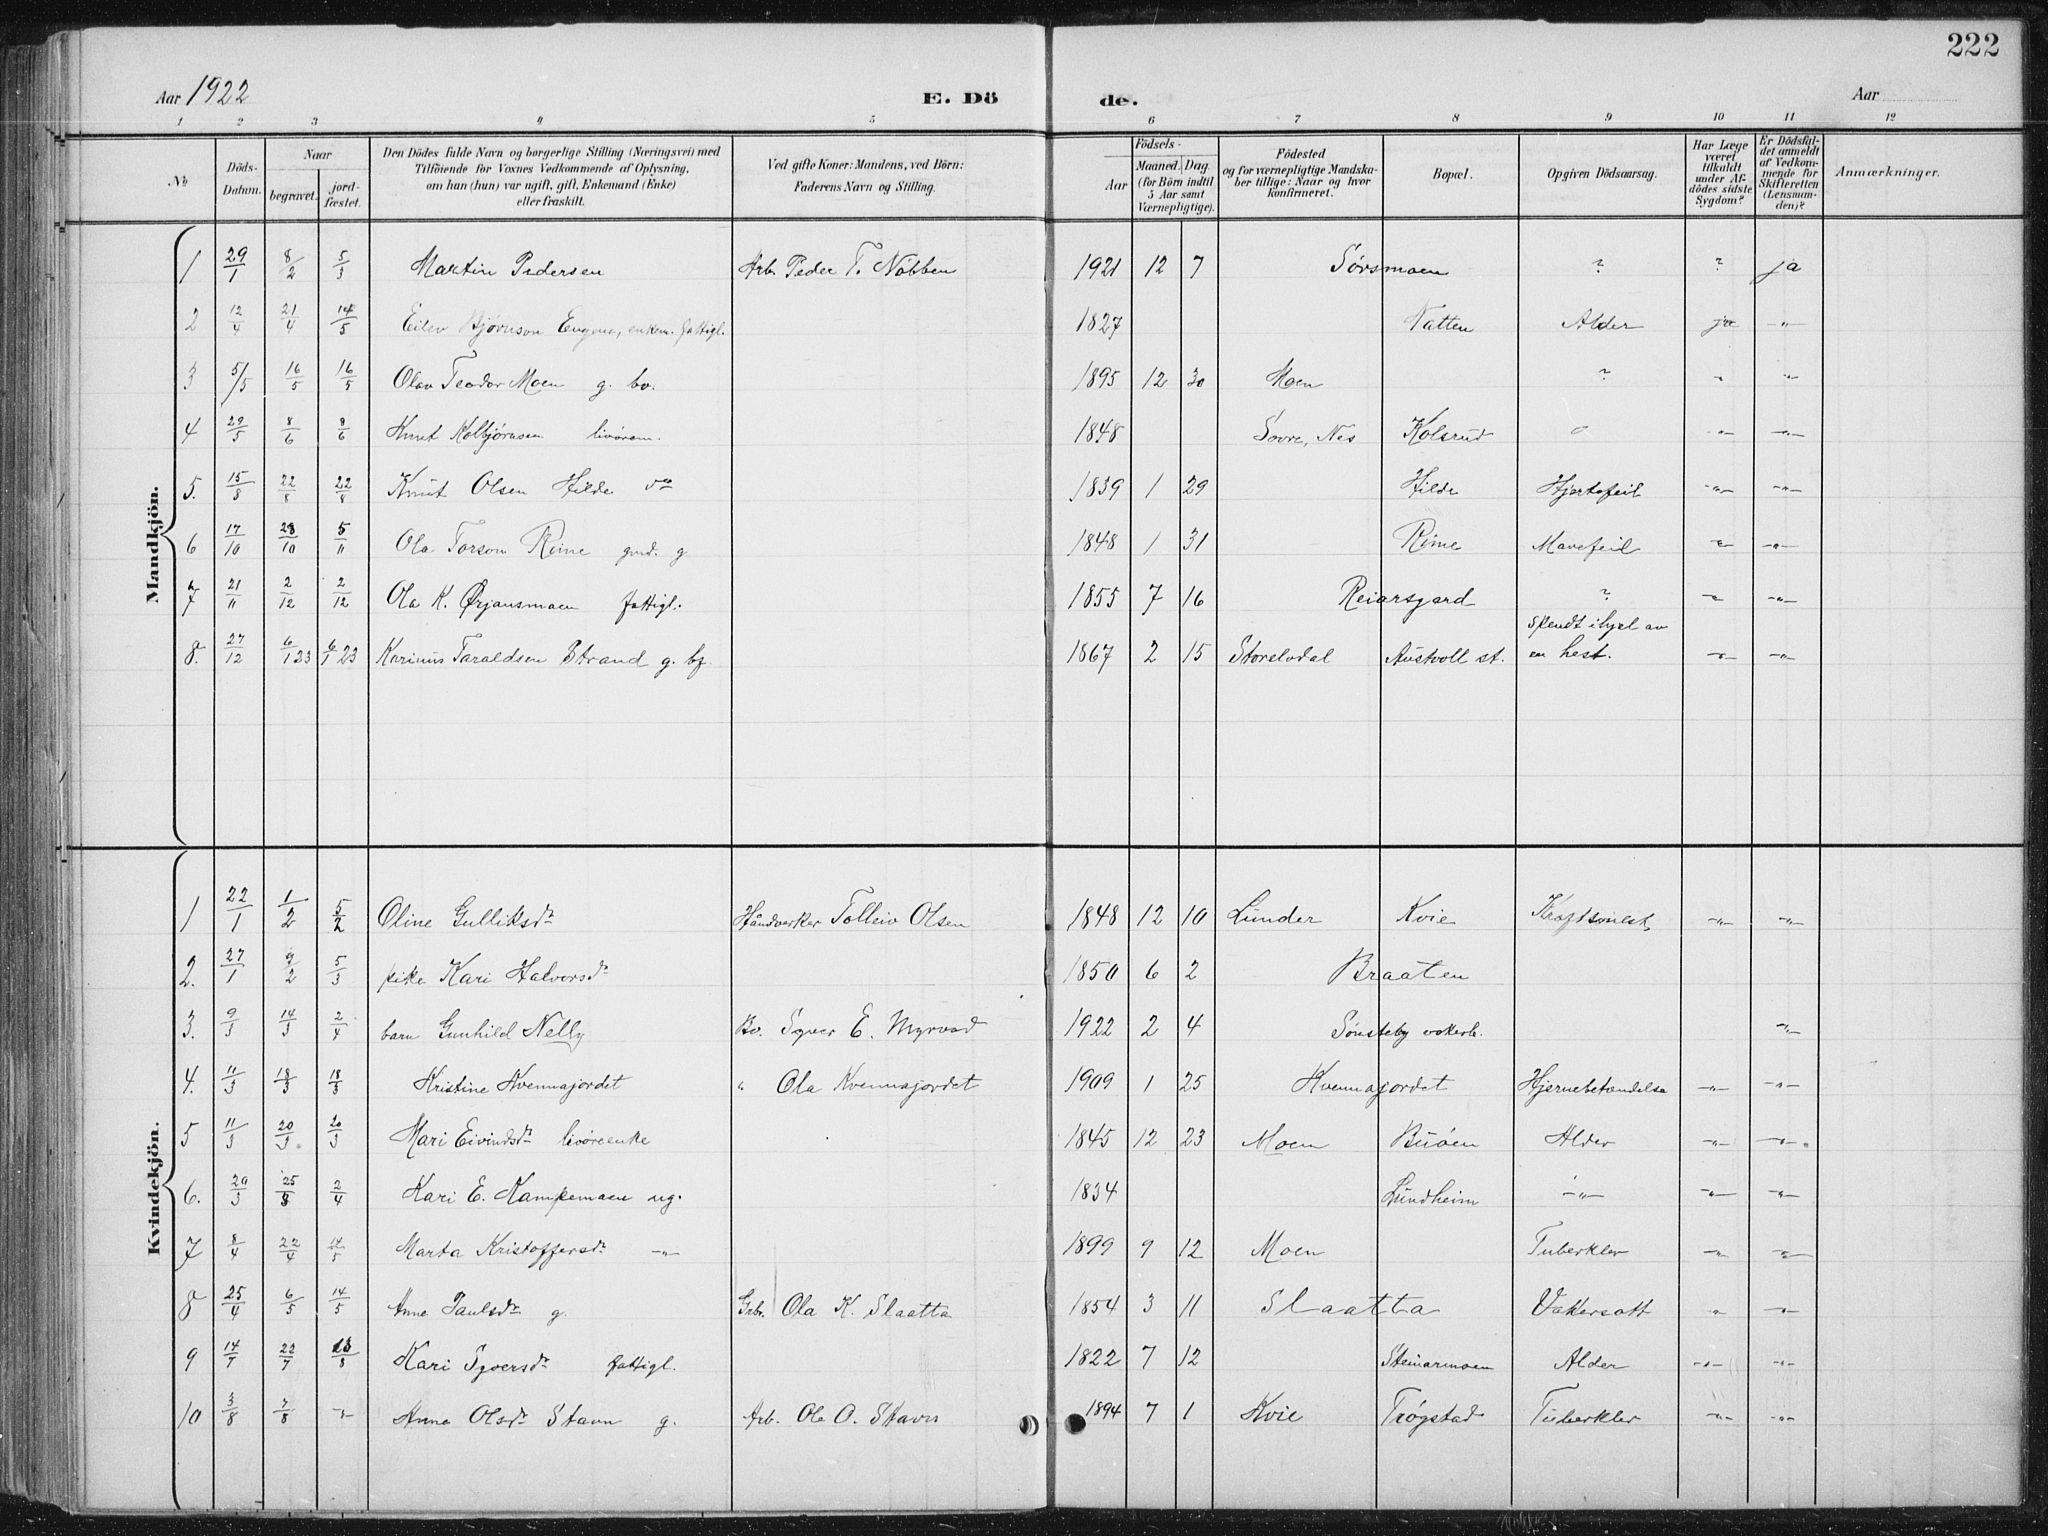 222
Aar 1922 E. Dö de. Aar
1 2 3 4 5 6 7 8 9 10 11 12
No. Döds-Datum. Naar begravet. jord-fæstet. Den Dödes fulde Navn og borgerlige Stilling (Næringsvei) med Tilföiende for Voxnes Vedkommende af Oplysning, om han (hun) var ugift, gift, Enkemand (Enke) eller fraskilt. Ved gifte Koner: Mandens, ved Börn: Faderens Navn og Stilling. Födsels- Aar Maaned. Dag. (for Börn indtil 5 Aar samt Værnepligtige). Födested og for værnepligtige Mandskaber tillige: Naar og hvor konfirmeret. Bopæl. Opgiven Dödsaarsag. Har Læge været tilkaldt under Afdödes sidste Sygdom? Er Dödsfaldet anmeldt af Vedkommende for Skifteretten (Lensmanden)? Anmærkninger.
Mandkjön.
1 29/1 8/2 5/3 Martin Pedersen Arb. Peder T. Nobben 1921 12 7 Sørsmoen ? ? ja
2 12/4 21/4 14/5 Eilev Bjørnson Engene, enkem. fattigl. 1827 Natten Alder ja -"-
3 5/5 16/5 16/5 Olav Teodor Moen g. bv. 1895 12 30 Moen ? " -"-
4 29/5 8/6 8/6 Knut Kolbjørnsen livørem. 1848 Sovre, Nes Kolsrud -"- -"-
5. 15/8 22/8 22/8 Knut Olsen Hilde 1839 1 29 Hilde Hjertefeil -"- -"-
6 17/10 28/10 5/11 Ola Torson Rime gmd. g 1848 1 31 Rime Mavefeil -"- -"-
7 21/11 2/12 2/12 Ola K. Ørjansmoen fattigl. 1855 7 16 Reiarsgard ? -"- -"-
8. 27/12 6/1 23 6/1 23 Karinus Taraldsen Strand g. bz. 1867 2 15 Storelvdal Austvoll st. spendt ihjel av en hest. -"- -"-
Kvindekjön.
1 22/1 1/2 5/2 Oline Gulliksdr Håndverker Tolleiv Olsen 1848 12 10 Lunder Kvie Kraftsvulst -"- -"-
2. 27/1 9/2 5/3 pike Kari Halvorsdr 1850 6 2 Braaten
3. 9/3 14/3 2/4 barn Gunhild Nelly Bv. Syver E. Myrvad 1922 2 4 Sønsteby vokerb. -"-
4. 11/3 18/3 18/3 Kristine Kvennajordet " Ola Kvennajordet 1909 1 25 Kvennajordet Hjernebetændelse -"- -"-
5 11/3 20/3 20/3 Mari Eivindsdr livøreenke 1845 12 23 Moen Buøen Alder -"- -"-
6. 20/3 25/3 2/4 Kari E. Kampemoen ug. 1834 Lundheim -"- -"- -"-
7 8/4 22/4 14/5 Marta Kristoffersdr -"- 1899 9 12 Moen Tuberkler -"- -"-
8 25/4 6/5 14/5 Anne Paulsdr g. Grbr. Ola K. Slaatta 1854 3 11 Slaatta Vattersott " -"-
9 14/7 22/7 13/8 Kari Syversdr fattigl. 1822 7 12 Steinarmoen Alder -"- -"-
10 3/8 7/8 -"- Anne Olsdr Stavn g. Arb. Ole O. Stavn 1894 7 1 Kvie Trøgstad Tuberkler -"- -"-